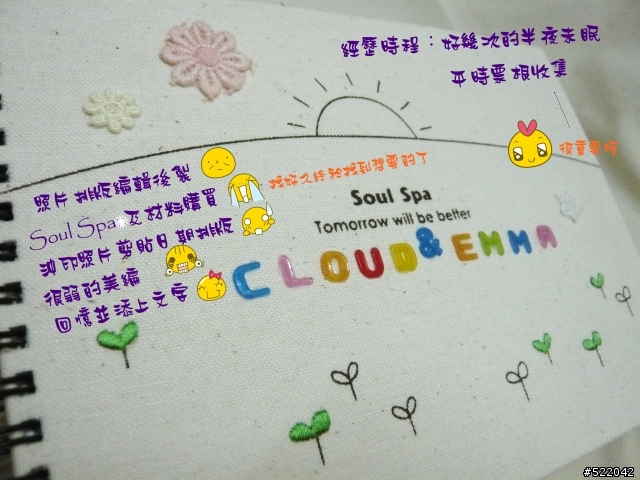 經歷時程：好幾次的半夜未眠
平時票根收集
很重要喔
照片排版編輯後製
找好久終於找到想要的了
Soul Spa及材料購買
沖印照片剪貼日期排版
很弱的美編
回憶並添上文字
Soul Spa
Tomorrow will be better
CLOUD & EMMA
#522042